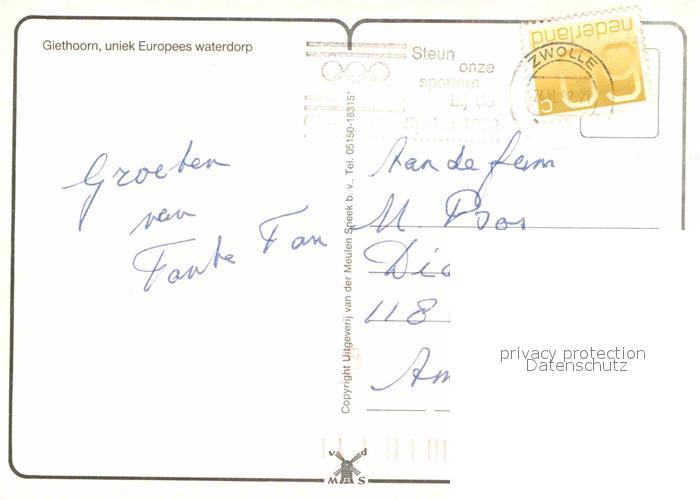 Giethoorn, uniek Europees waterdorp
Steun
onze
sporters
bij de
Spelen
ZWOLLE
nederland
60
c
Groeten
van
Tante Fan
Aan de fam
M. Poos
Di
118
Am
privacy protection
Datenschutz
Copyright Uitgeverij van der Meulen Sneek b.v., Tel. 05150-18315*
v d
MAS